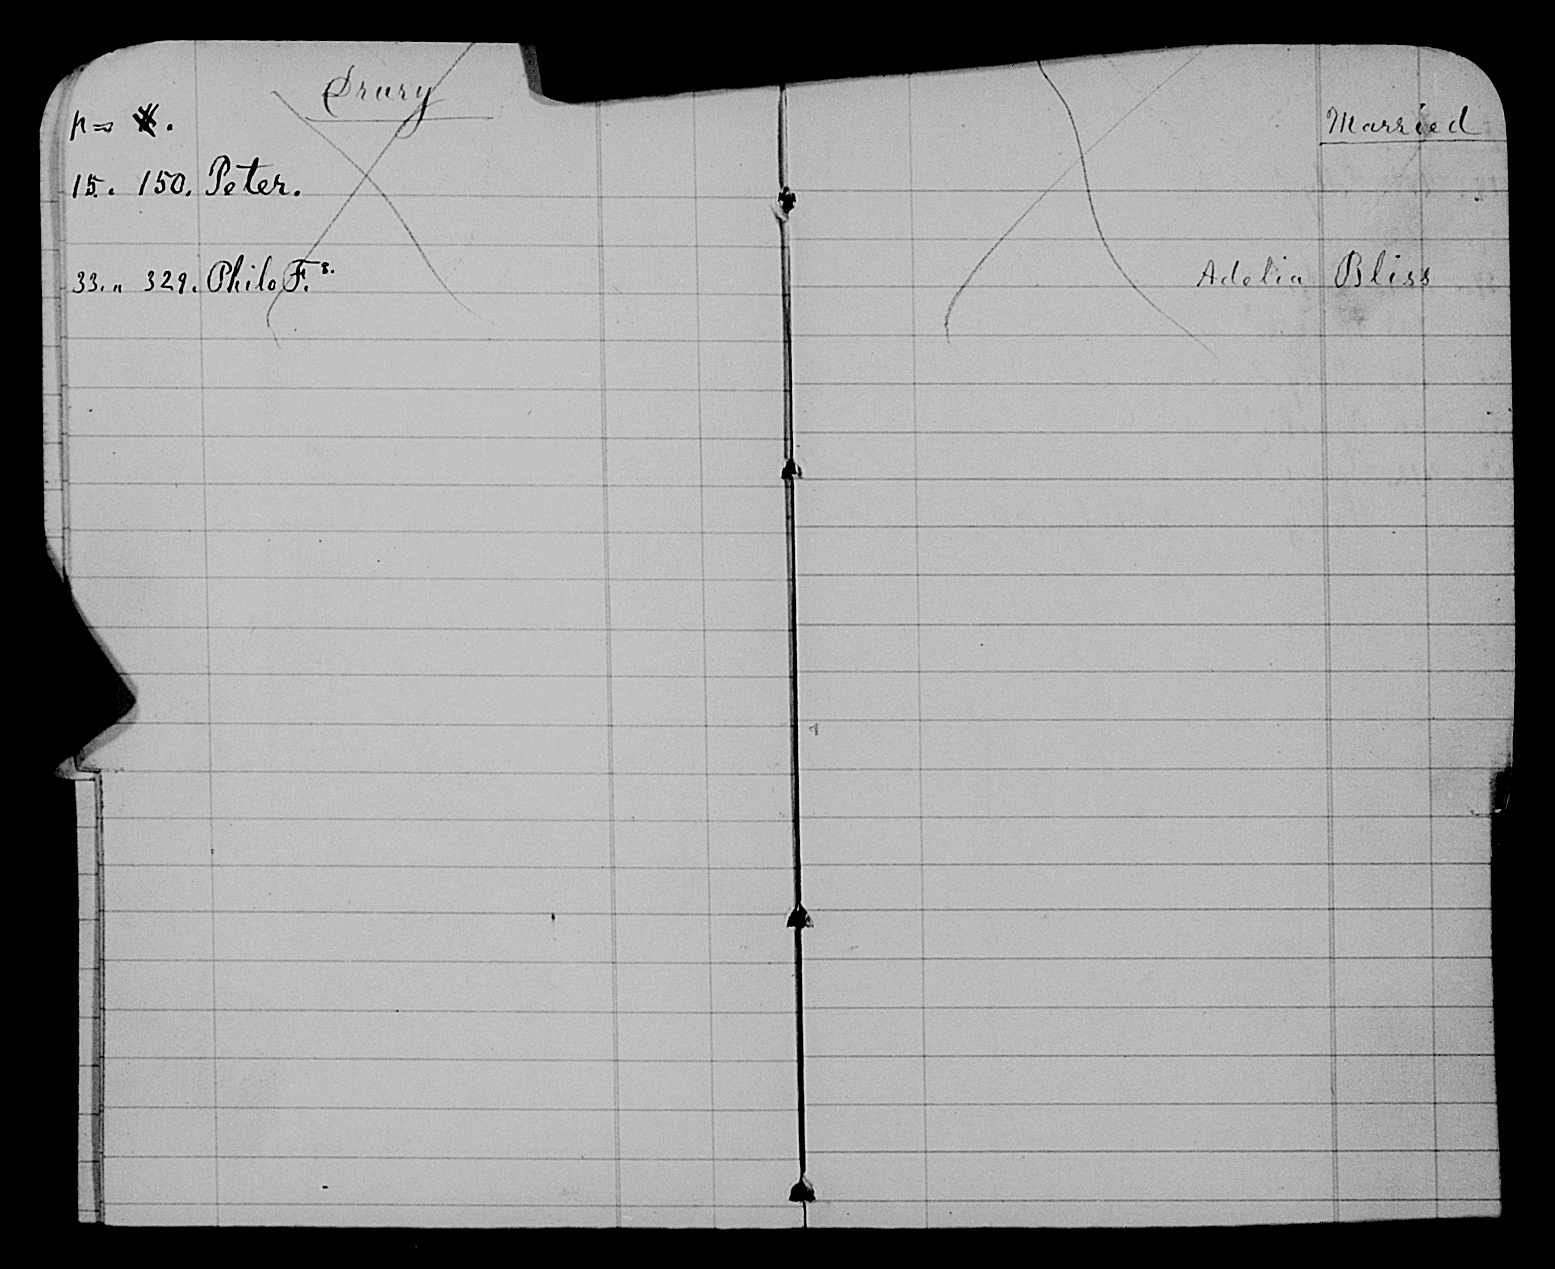 Drury
Married
15. 150. Peter.
33. " 329. Philo F. 8. Adelia Bliss